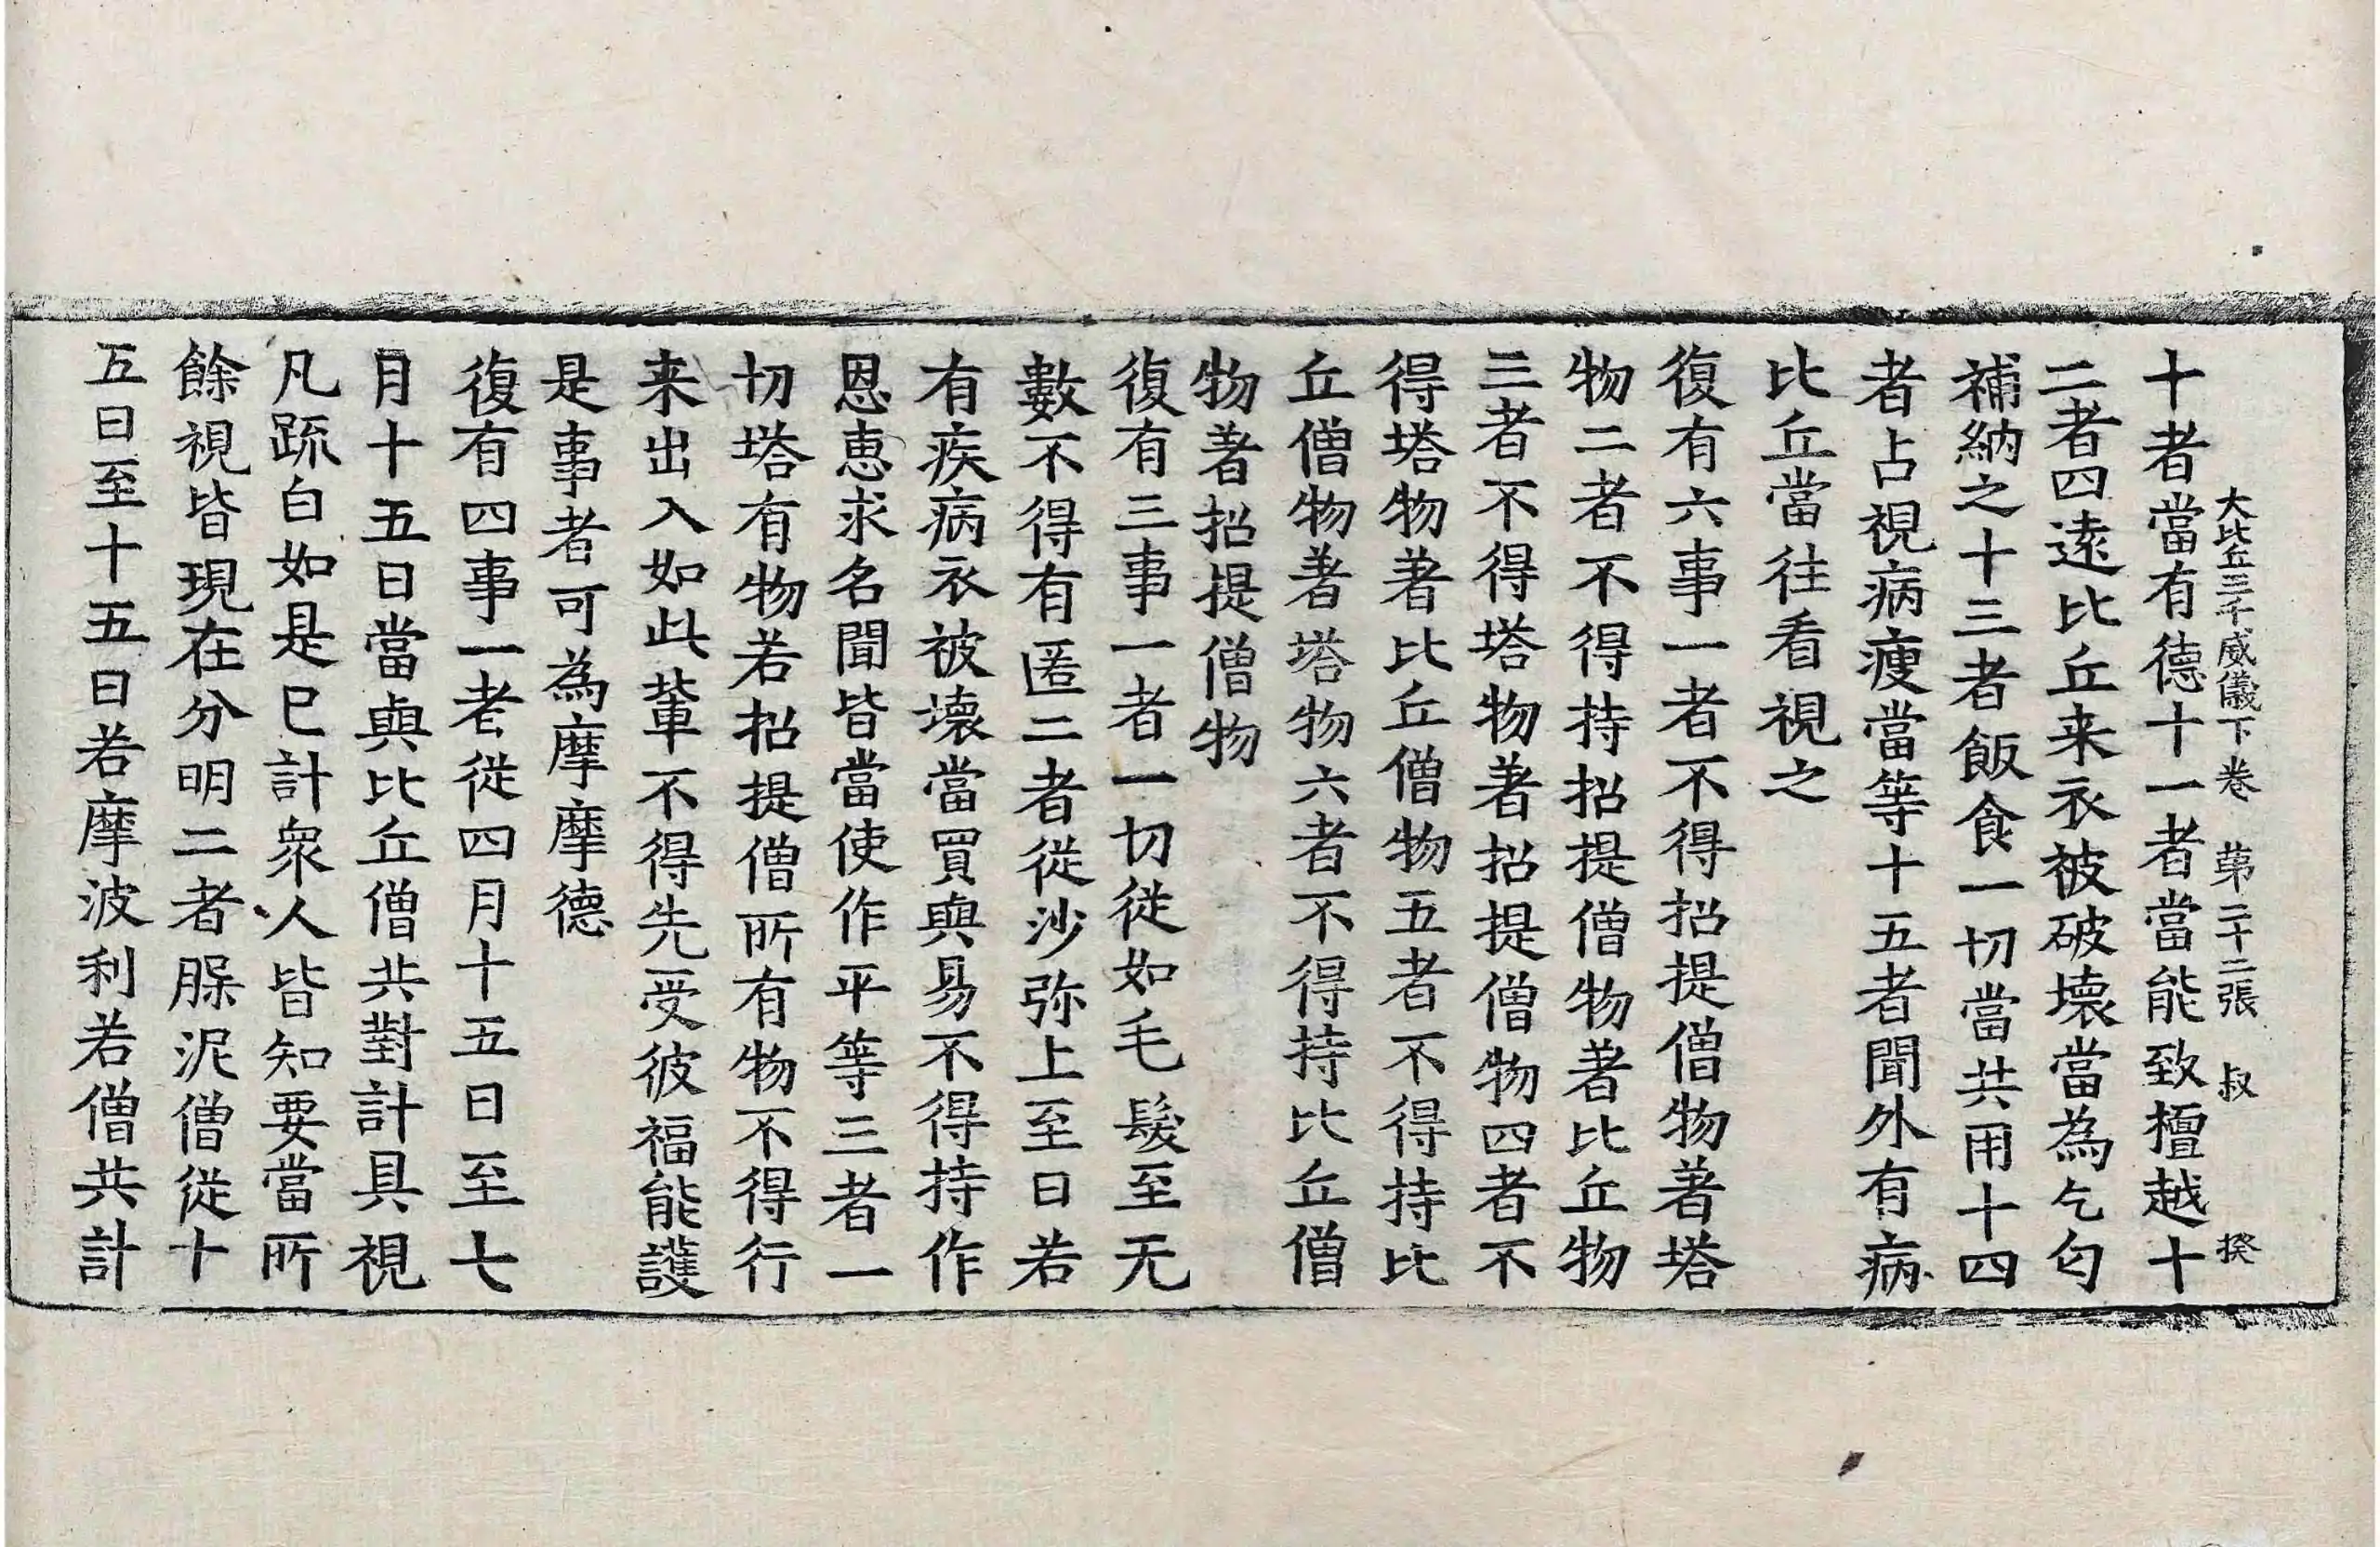 大比丘三千威儀下卷　第二十二張　叔　揆
十者當有德十一者當能致擅越十
二者四遠比丘来衣被破壞當為乞匂
補納之十三者飯食一切當共用十四
者占視病瘦當等十五者聞外有病
比丘當往看視之
復有六事一者不得招提僧物著塔
物二者不得持招提僧物著比丘物
三者不得塔物著招提僧物四者不
得塔物著比丘僧物五者不得持比
丘僧物著塔物六者不得持比丘僧
物著招提僧物
復有三事一者一切從如毛髮至无
數不得有匿二者從沙弥上至日若
有疾病衣被壞當買與易不得持作
恩恵求名聞皆當使作平等三者一
切塔有物若招提僧所有物不得行
来出入如此軰不得先受彼福能護
是事者可為摩摩德
復有四事一者從四月十五日至七
月十五日當與比丘僧共對計具視
凡䟽白如是已計衆人皆知要當所
餘視皆現在分明二者脲泥僧從十
五日至十五日若摩波利若僧共計